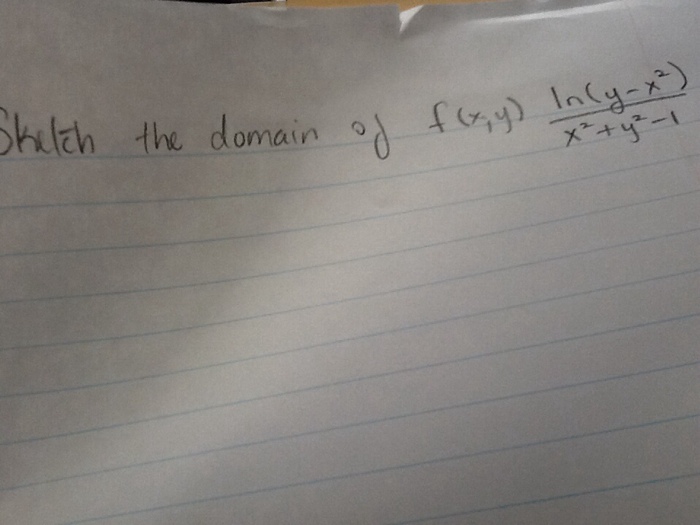 Sketch the domain of f(x,y) ln(y-x²)/x²+y²-1